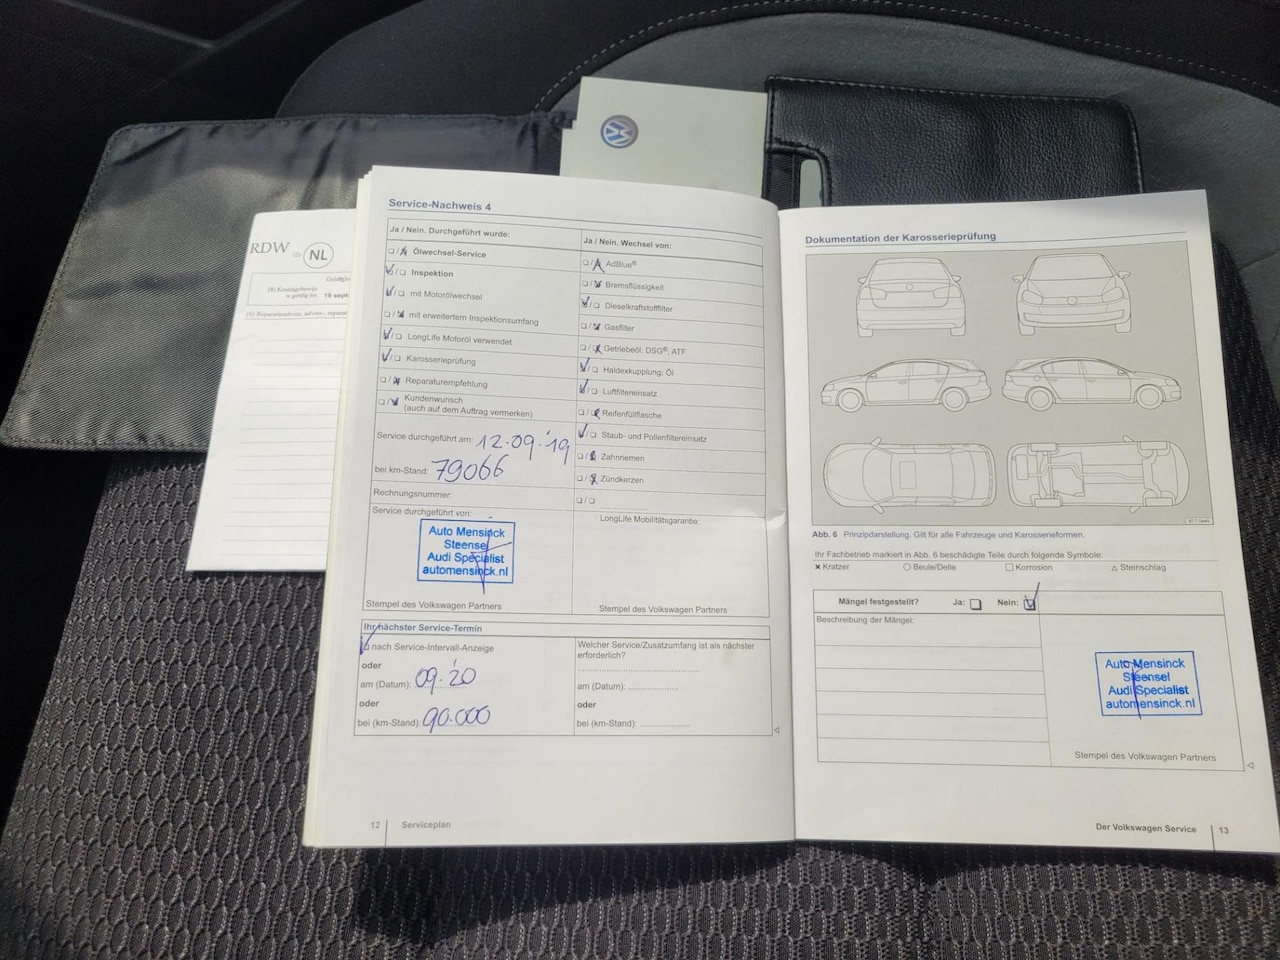 RDW
NL
19 sept
Service-Nachweis 4
Ja / Nein. Durchgeführt wurde:
Ölwechsel-Service
Inspektion
mit Motorölwechsel
mit erweitertem Inspektionsumfang
LongLife Motoröl verwendet
Karosserieprüfung
Reparaturempfehlung
Kundenwunsch
(auch auf dem Auftrag vermerken)
Service durchgeführt am: 12.09.'19
bei km-Stand: 79066
Rechnungsnummer:
Service durchgeführt von:
Auto Mensinck
Steensel
Audi Specialist
automensinck.nl
Stempel des Volkswagen Partners
Ja / Nein. Wechsel von:
AdBlue®
Bremsflüssigkeit
Dieselkraftstofffilter
Gasfilter
Getriebeöl: DSG®, ATF
Haldexkupplung: Öl
Luftfiltereinsatz
Reifenfüllflasche
Staub- und Pollenfiltereinsatz
Zahnriemen
Zündkerzen
LongLife Mobilitätsgarantie:
Stempel des Volkswagen Partners
Ihr nächster Service-Termin
nach Service-Intervall-Anzeige
oder
am (Datum): 09.'20
oder
bei (km-Stand): 90.000
Welcher Service/Zusatzumfang ist als nächster
erforderlich?
am (Datum):
oder
bei (km-Stand):
12 Serviceplan
Dokumentation der Karosserieprüfung
Abb. 6 Prinzipdarstellung. Gilt für alle Fahrzeuge und Karosserieformen.
Ihr Fachbetrieb markiert in Abb. 6 beschädigte Teile durch folgende Symbole:
Kratzer Beule/Delle Korrosion Steinschlag
Mängel festgestellt? Ja: Nein:
Beschreibung der Mängel:
Auto Mensinck
Steensel
Audi Specialist
automensinck.nl
Stempel des Volkswagen Partners
Der Volkswagen Service 13